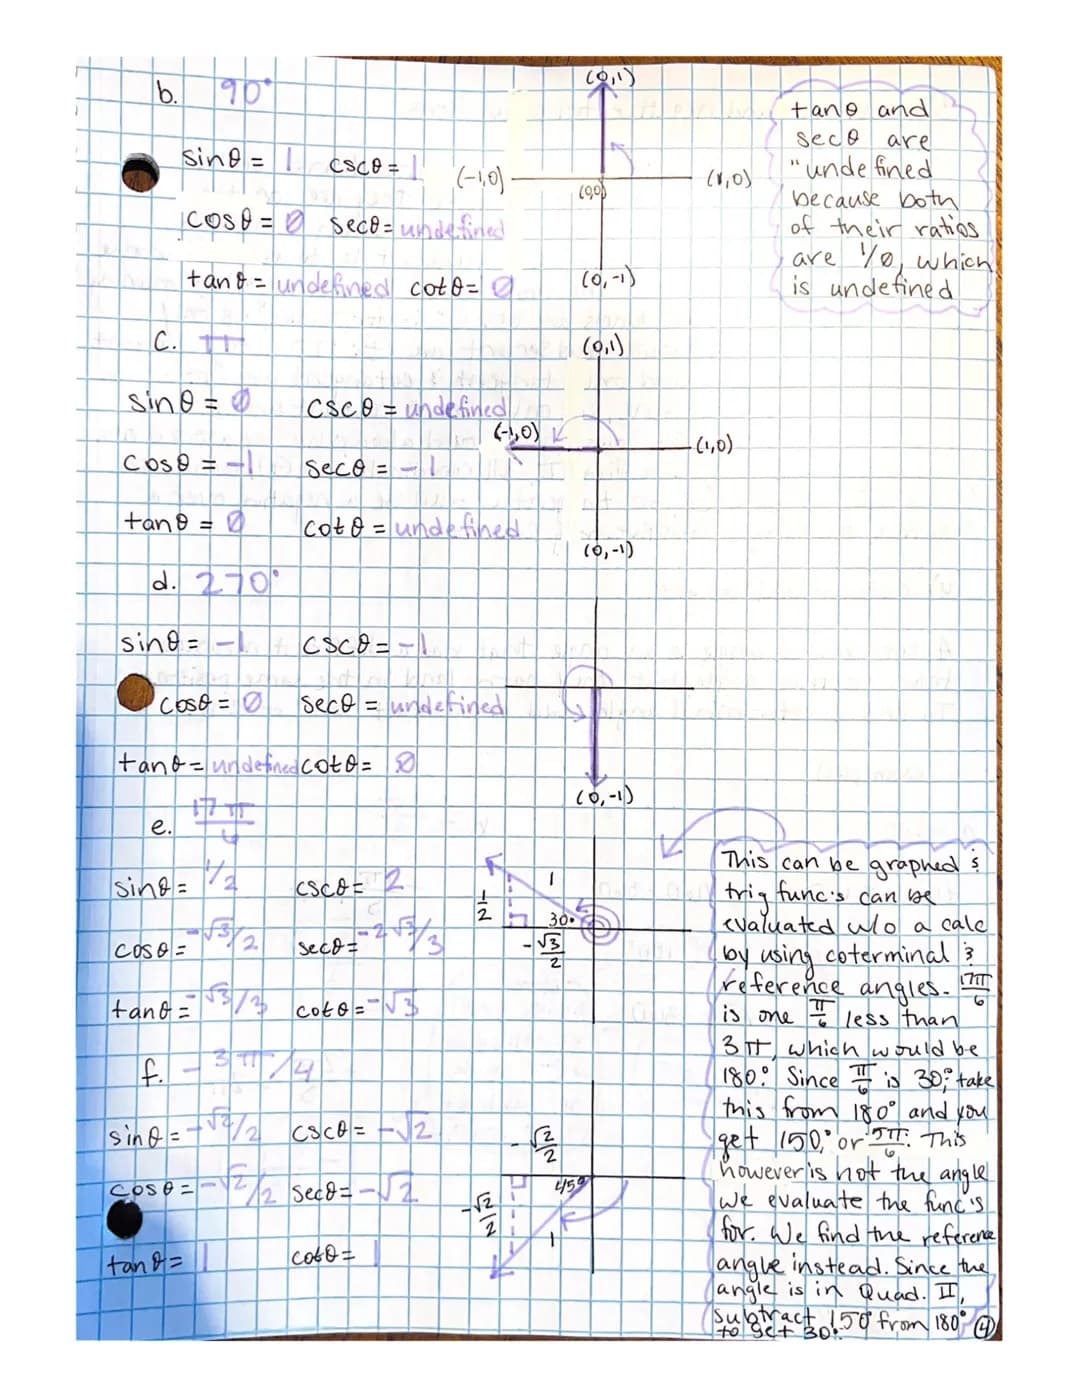 b. 90°
(0,1)
sinθ = 1 cscθ = 1
(-1,0)
(1,0)
(0,0)
cosθ = 0 secθ = undefined
tanθ = undefined cotθ = 0
(0,-1)
tanθ and
secθ are
"undefined
because both
of their ratios
are 1/0, which
is undefined
c. π
(0,1)
sinθ = 0 cscθ = undefined
(-1,0)
(1,0)
cosθ = -1 secθ = -1
tanθ = 0 cotθ = undefined
(0,-1)
d. 270°
sinθ = -1 cscθ = -1
cosθ = 0 secθ = undefined
tanθ = undefined cotθ = 0
(0,-1)
e. 17π/6
sinθ = 1/2 cscθ = 2
cosθ = -√3/2 secθ = -2√3/3
tanθ = -√3/3 cotθ = -√3
1
1/2
30°
-√3/2
f. -3π/4
sinθ = -√2/2 cscθ = -√2
cosθ = -√2/2 secθ = -√2
tanθ = 1 cotθ = 1
-√2/2
45°
-√2/2
1
This can be graphed &
trig func's can be
evaluated w/o a calc
by using coterminal &
reference angles. 17π/6
is one π/6 less than
3π, which would be
180°. Since π/6 is 30°, take
this from 180° and you
get 150°, or 5π/6. This
however is not the angle
we evaluate the func's
for. We find the reference
angle instead. Since the
angle is in Quad. II,
subtract 150° from 180°
to get 30°.
4